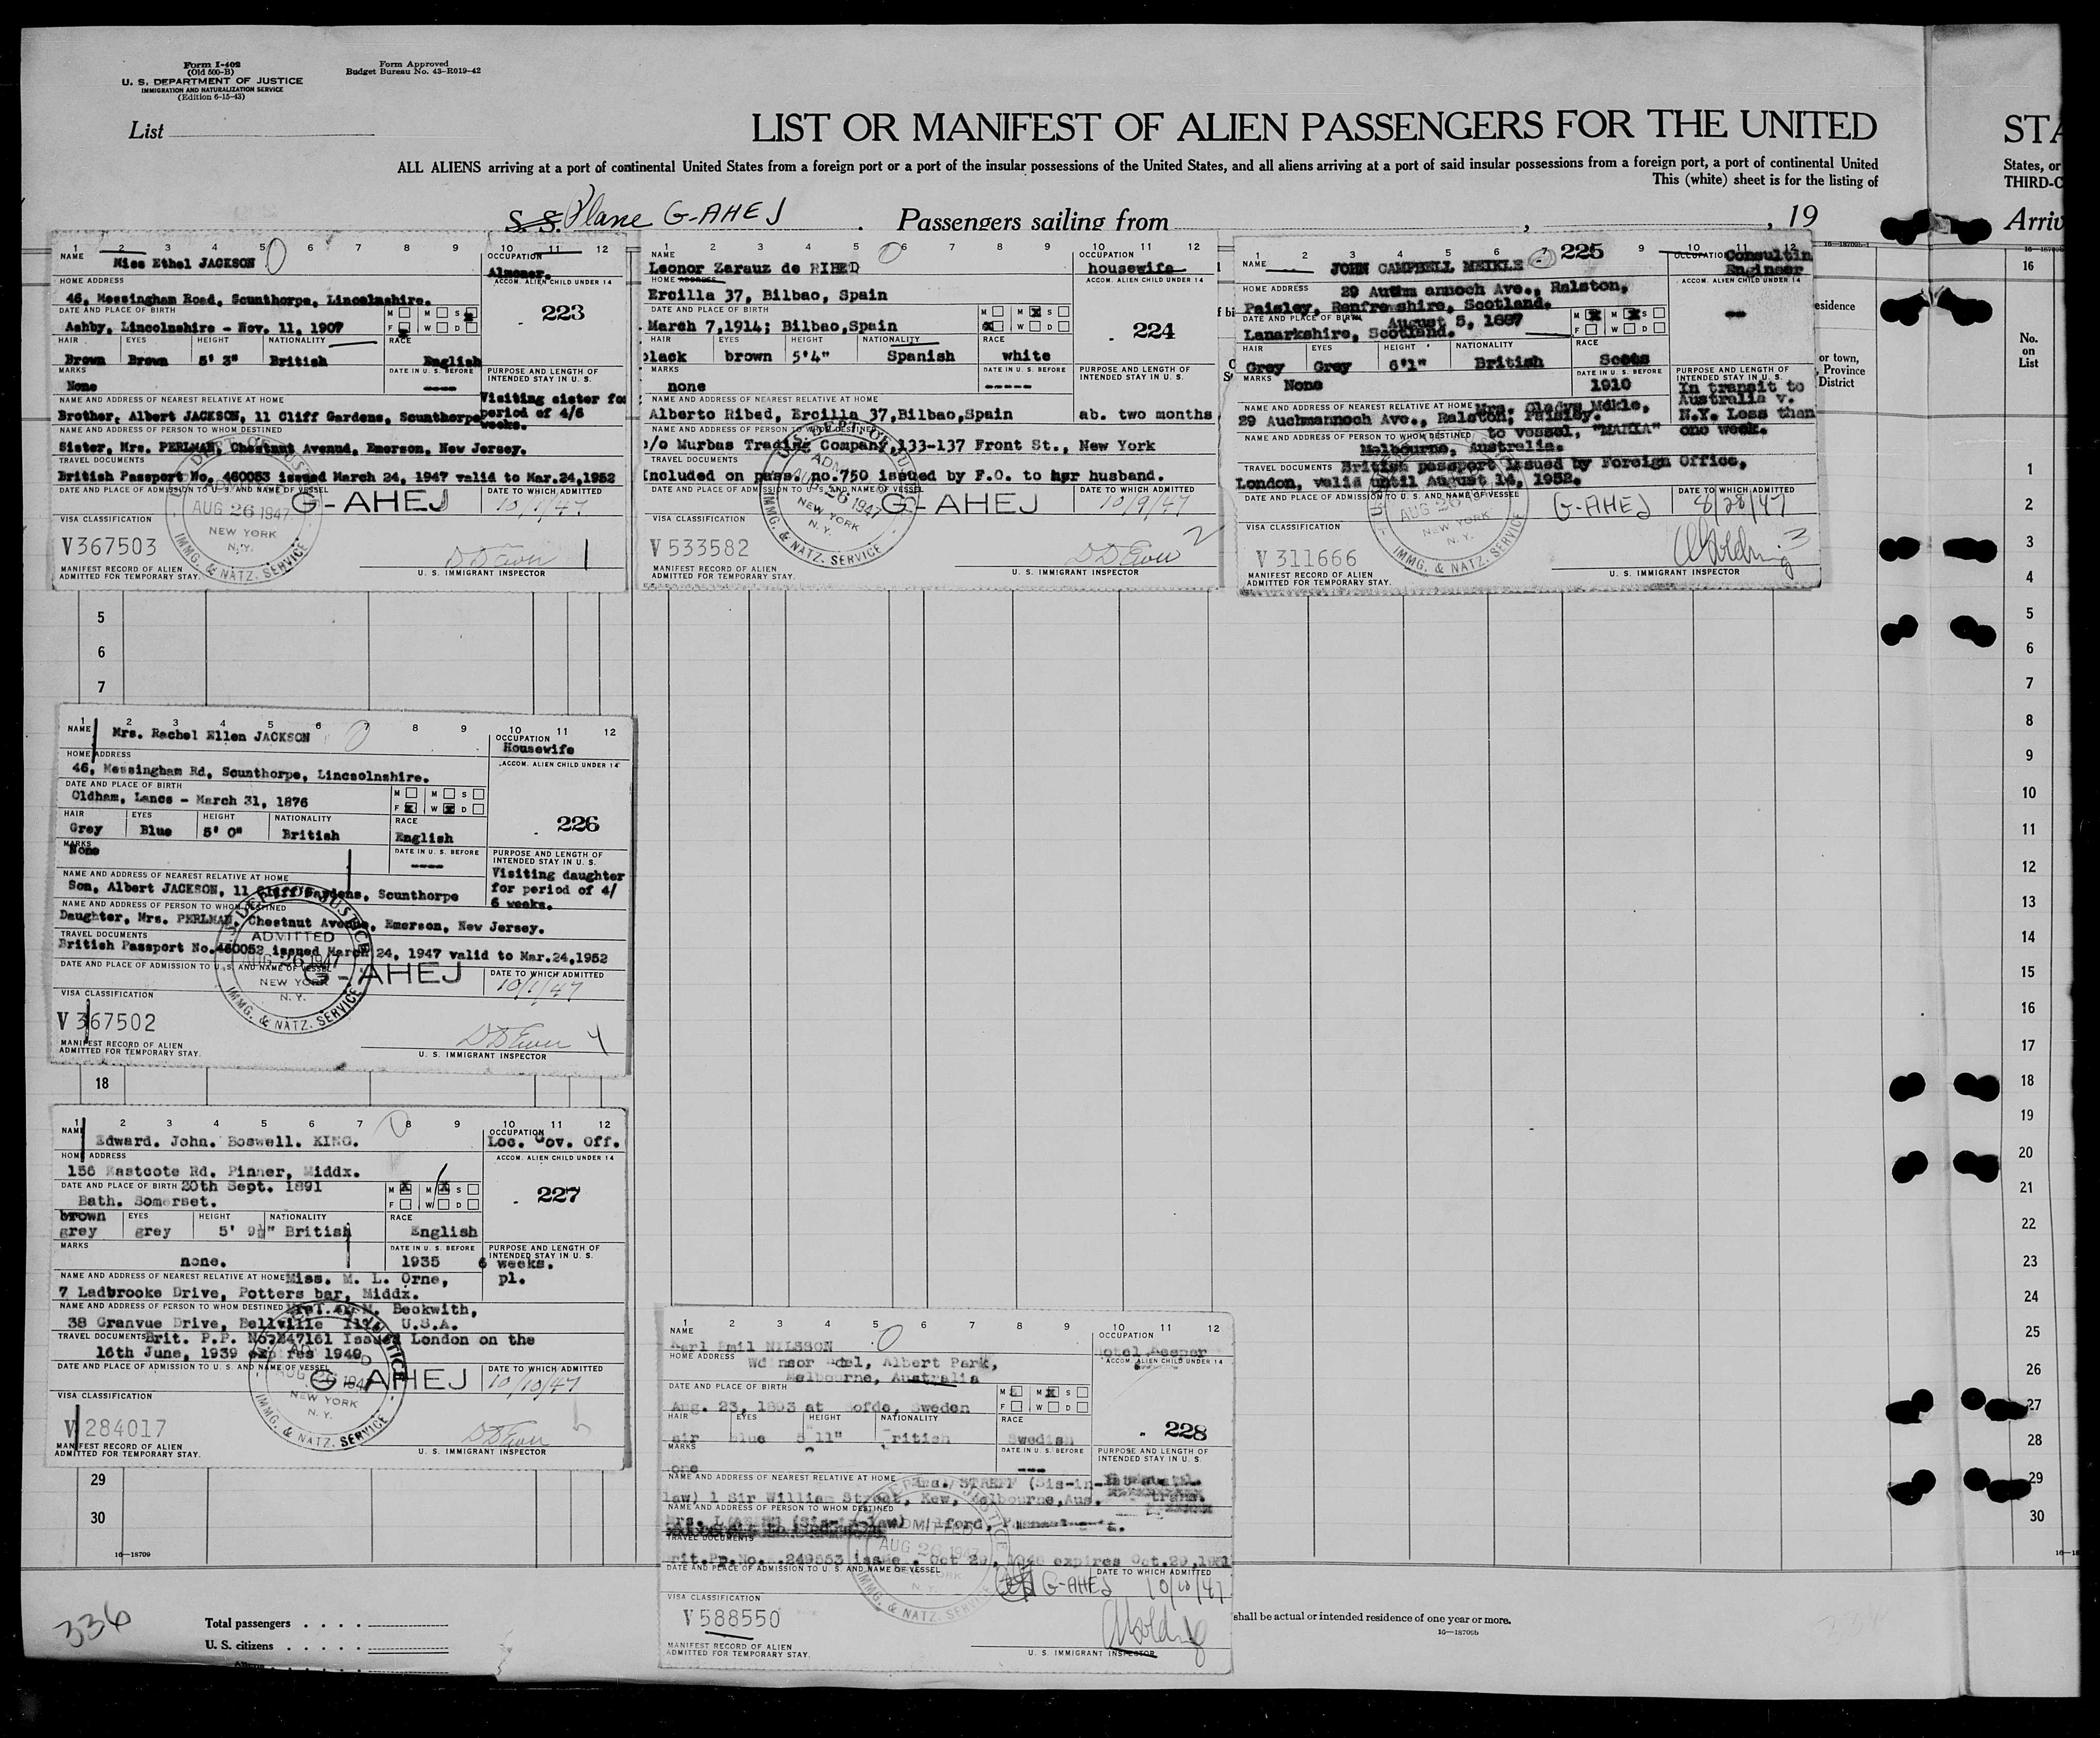 Form I-402
(Old 500-B)
U. S. DEPARTMENT OF JUSTICE
IMMIGRATION AND NATURALIZATION SERVICE
(Edition 6-15-43)
Form Approved
Budget Bureau No. 43-R019-42
List
LIST OR MANIFEST OF ALIEN PASSENGERS FOR THE UNITED
STA
ALL ALIENS arriving at a port of continental United States from a foreign port or a port of the insular possessions of the United States, and all aliens arriving at a port of said insular possessions from a foreign port, a port of continental United
States, or
This (white) sheet is for the listing of
THIRD-C
S. S. Plane G-AHEJ . Passengers sailing from , , 19
Arriv
1 2 3 4 5 6 7 8 9 10 11 12
NAME Miss Ethel JACKSON
OCCUPATION Almoner.
HOME ADDRESS
ACCOM. ALIEN CHILD UNDER 14
46, Messingham Road, Scunthorpe, Lincolnshire.
DATE AND PLACE OF BIRTH
M M S
F W D
223
Ashby, Lincolnshire - Nov. 11, 1907
HAIR EYES HEIGHT NATIONALITY RACE
Brown Brown 5' 3" British English
MARKS DATE IN U. S. BEFORE PURPOSE AND LENGTH OF INTENDED STAY IN U. S.
None ----
Visiting sister for period of 4/6 weeks.
NAME AND ADDRESS OF NEAREST RELATIVE AT HOME
Brother, Albert JACKSON, 11 Cliff Gardens, Scunthorpe
NAME AND ADDRESS OF PERSON TO WHOM DESTINED
Sister, Mrs. PERLMAN, Chestnut Avenud, Emerson, New Jersey.
TRAVEL DOCUMENTS
British Passport No. 460053 issued March 24, 1947 valid to Mar.24,1952
DATE AND PLACE OF ADMISSION TO U. S. AND NAME OF VESSEL
DATE TO WHICH ADMITTED
AUG 26 1947
NEW YORK
N. Y.
IMMG. & NATZ. SERVICE
G-AHEJ
10/1/47
VISA CLASSIFICATION
V367503
1
MANIFEST RECORD OF ALIEN
ADMITTED FOR TEMPORARY STAY.
U. S. IMMIGRANT INSPECTOR
1 2 3 4 5 6 7 8 9 10 11 12
NAME
Leonor Zarauz de RIBED
OCCUPATION
housewife
HOME ADDRESS
ACCOM. ALIEN CHILD UNDER 14
Ercilla 37, Bilbao, Spain
DATE AND PLACE OF BIRTH
M M S
F W D
224
March 7,1914; Bilbao,Spain
HAIR EYES HEIGHT NATIONALITY RACE
black brown 5'4" Spanish white
MARKS DATE IN U. S. BEFORE PURPOSE AND LENGTH OF INTENDED STAY IN U. S.
none -----
NAME AND ADDRESS OF NEAREST RELATIVE AT HOME
Alberto Ribed, Ercilla 37,Bilbao,Spain ab. two months
NAME AND ADDRESS OF PERSON TO WHOM DESTINED
c/o Murbas Trading Company,133-137 Front St., New York
TRAVEL DOCUMENTS
Included on pass. no.750 issued by F.O. to her husband.
DATE AND PLACE OF ADMISSION TO U. S. AND NAME OF VESSEL
DATE TO WHICH ADMITTED
NEW YORK
N. Y.
IMMG. & NATZ. SERVICE
G-AHEJ
10/9/47
VISA CLASSIFICATION
V533582
2
MANIFEST RECORD OF ALIEN
ADMITTED FOR TEMPORARY STAY.
U. S. IMMIGRANT INSPECTOR
1 2 3 4 5 6 7 225 9 10 11 12
NAME JOHN CAMPBELL MEIKLE
OCCUPATION Consultin Engineer
HOME ADDRESS
ACCOM. ALIEN CHILD UNDER 14
29 annoch Ave., Ralston,
Paisley, Renfrewshire, Scotland.
DATE AND PLACE OF BIRTH August 5, 1887
M M S
F W D
Lanarkshire, Scotland.
HAIR EYES HEIGHT NATIONALITY RACE
Grey Grey 6'1" British Scots
MARKS None
DATE IN U. S. BEFORE
1910
PURPOSE AND LENGTH OF INTENDED STAY IN U. S.
In transit to Australia v. N.Y. Less than one week.
NAME AND ADDRESS OF NEAREST RELATIVE AT HOME Mrs. Gladys Mdkle,
29 Auchmannoch Ave., Ralston, Paisley.
NAME AND ADDRESS OF PERSON TO WHOM DESTINED to vessel,
Melbourne, Australia.
TRAVEL DOCUMENTS British passport issued by Foreign Office,
London, valid until August 14, 1952.
DATE AND PLACE OF ADMISSION TO U. S. AND NAME OF VESSEL
DATE TO WHICH ADMITTED
AUG 26
NEW YORK
N. Y.
IMMG. & NATZ. SERVICE
G-AHEJ
8/28/47
VISA CLASSIFICATION
V311666
3
MANIFEST RECORD OF ALIEN
ADMITTED FOR TEMPORARY STAY.
U. S. IMMIGRANT INSPECTOR
esidence
or town, Province District
16—18709b-1
16
No. on List
1
2
3
4
5
6
7
1 2 3 4 5 6 7 8 9 10 11 12
NAME Mrs. Rachel Ellen JACKSON
OCCUPATION
Housewife
HOME ADDRESS
ACCOM. ALIEN CHILD UNDER 14
46, Messingham Rd, Scunthorpe, Lincsolnshire.
DATE AND PLACE OF BIRTH
M M S
F W D
226
Oldham, Lancs - March 31, 1876
HAIR EYES HEIGHT NATIONALITY RACE
Grey Blue 5' 0" British English
MARKS DATE IN U. S. BEFORE PURPOSE AND LENGTH OF INTENDED STAY IN U. S.
None ----
Visiting daughter for period of 4/ 6 weeks.
NAME AND ADDRESS OF NEAREST RELATIVE AT HOME
Son, Albert JACKSON, 11 Cliff Gardens, Scunthorpe
NAME AND ADDRESS OF PERSON TO WHOM DESTINED
Daughter, Mrs. PERLMAN, Chestnut Avenue, Emerson, New Jersey.
TRAVEL DOCUMENTS
ADMITTED
British Passport No.460052 issued March 24, 1947 valid to Mar.24,1952
DATE AND PLACE OF ADMISSION TO U. S. AND NAME OF VESSEL
DATE TO WHICH ADMITTED
AUG 26 1947
NEW YORK
N. Y.
IMMG. & NATZ. SERVICE
G-AHEJ
10/1/47
VISA CLASSIFICATION
V367502
4
MANIFEST RECORD OF ALIEN
ADMITTED FOR TEMPORARY STAY.
U. S. IMMIGRANT INSPECTOR
18
1 2 3 4 5 6 7 8 9 10 11 12
NAME Edward. John. Boswell. KING.
OCCUPATION
Loc. Gov. Off.
HOME ADDRESS
ACCOM. ALIEN CHILD UNDER 14
156 Eastcote Rd. Pinner, Middx.
DATE AND PLACE OF BIRTH 20th Sept. 1891
M M S
F W D
227
Bath. Somerset.
brown
EYES HEIGHT NATIONALITY RACE
grey grey 5' 9½" British English
MARKS DATE IN U. S. BEFORE PURPOSE AND LENGTH OF INTENDED STAY IN U. S.
none. 1935 6 weeks.
NAME AND ADDRESS OF NEAREST RELATIVE AT HOME Miss. M. L. Orne, pl.
7 Ladbrooke Drive, Potters bar, Middx.
NAME AND ADDRESS OF PERSON TO WHOM DESTINED Beckwith,
38 Granvue Drive, Bellville Ill. U.S.A.
TRAVEL DOCUMENTS Brit. P.P. No 247161 Issued London on the
16th June, 1939 expires 1949
DATE AND PLACE OF ADMISSION TO U. S. AND NAME OF VESSEL
DATE TO WHICH ADMITTED
AUG 26 1947
NEW YORK
N. Y.
IMMG. & NATZ. SERVICE
G-AHEJ
10/10/47
VISA CLASSIFICATION
V284017
5
MANIFEST RECORD OF ALIEN
ADMITTED FOR TEMPORARY STAY.
U. S. IMMIGRANT INSPECTOR
29
30
16—18709
1 2 3 4 5 6 7 8 9 10 11 12
NAME
Karl Emil NILSSON
OCCUPATION
HOME ADDRESS
ACCOM. ALIEN CHILD UNDER 14
Albert Park,
Melbourne, Australia
DATE AND PLACE OF BIRTH
M M S
F W D
228
Aug. 23, 1893 at Sweden
HAIR EYES HEIGHT NATIONALITY RACE
blue 5 11" ritish Swedish
MARKS DATE IN U. S. BEFORE PURPOSE AND LENGTH OF INTENDED STAY IN U. S.
one ---
NAME AND ADDRESS OF NEAREST RELATIVE AT HOME (Sis-in-
law) 1 Sir William Street, Kew, Melbourne,Aus.
trans.
NAME AND ADDRESS OF PERSON TO WHOM DESTINED
TRAVEL DOCUMENTS
rit.Pp.No. 249553 Oct 29, expires Oct.29,
DATE AND PLACE OF ADMISSION TO U. S. AND NAME OF VESSEL
DATE TO WHICH ADMITTED
AUG 26 1947
IMMG. & NATZ. SERVICE
G-AHEJ
10/10/47
VISA CLASSIFICATION
V588550
MANIFEST RECORD OF ALIEN
ADMITTED FOR TEMPORARY STAY.
U. S. IMMIGRANT INSPECTOR
5
6
7
8
9
10
11
12
13
14
15
16
17
18
19
20
21
22
23
24
25
26
27
28
29
30
336
Total passengers . . . .
U. S. citizens . . . . .
shall be actual or intended residence of one year or more.
16—18709b